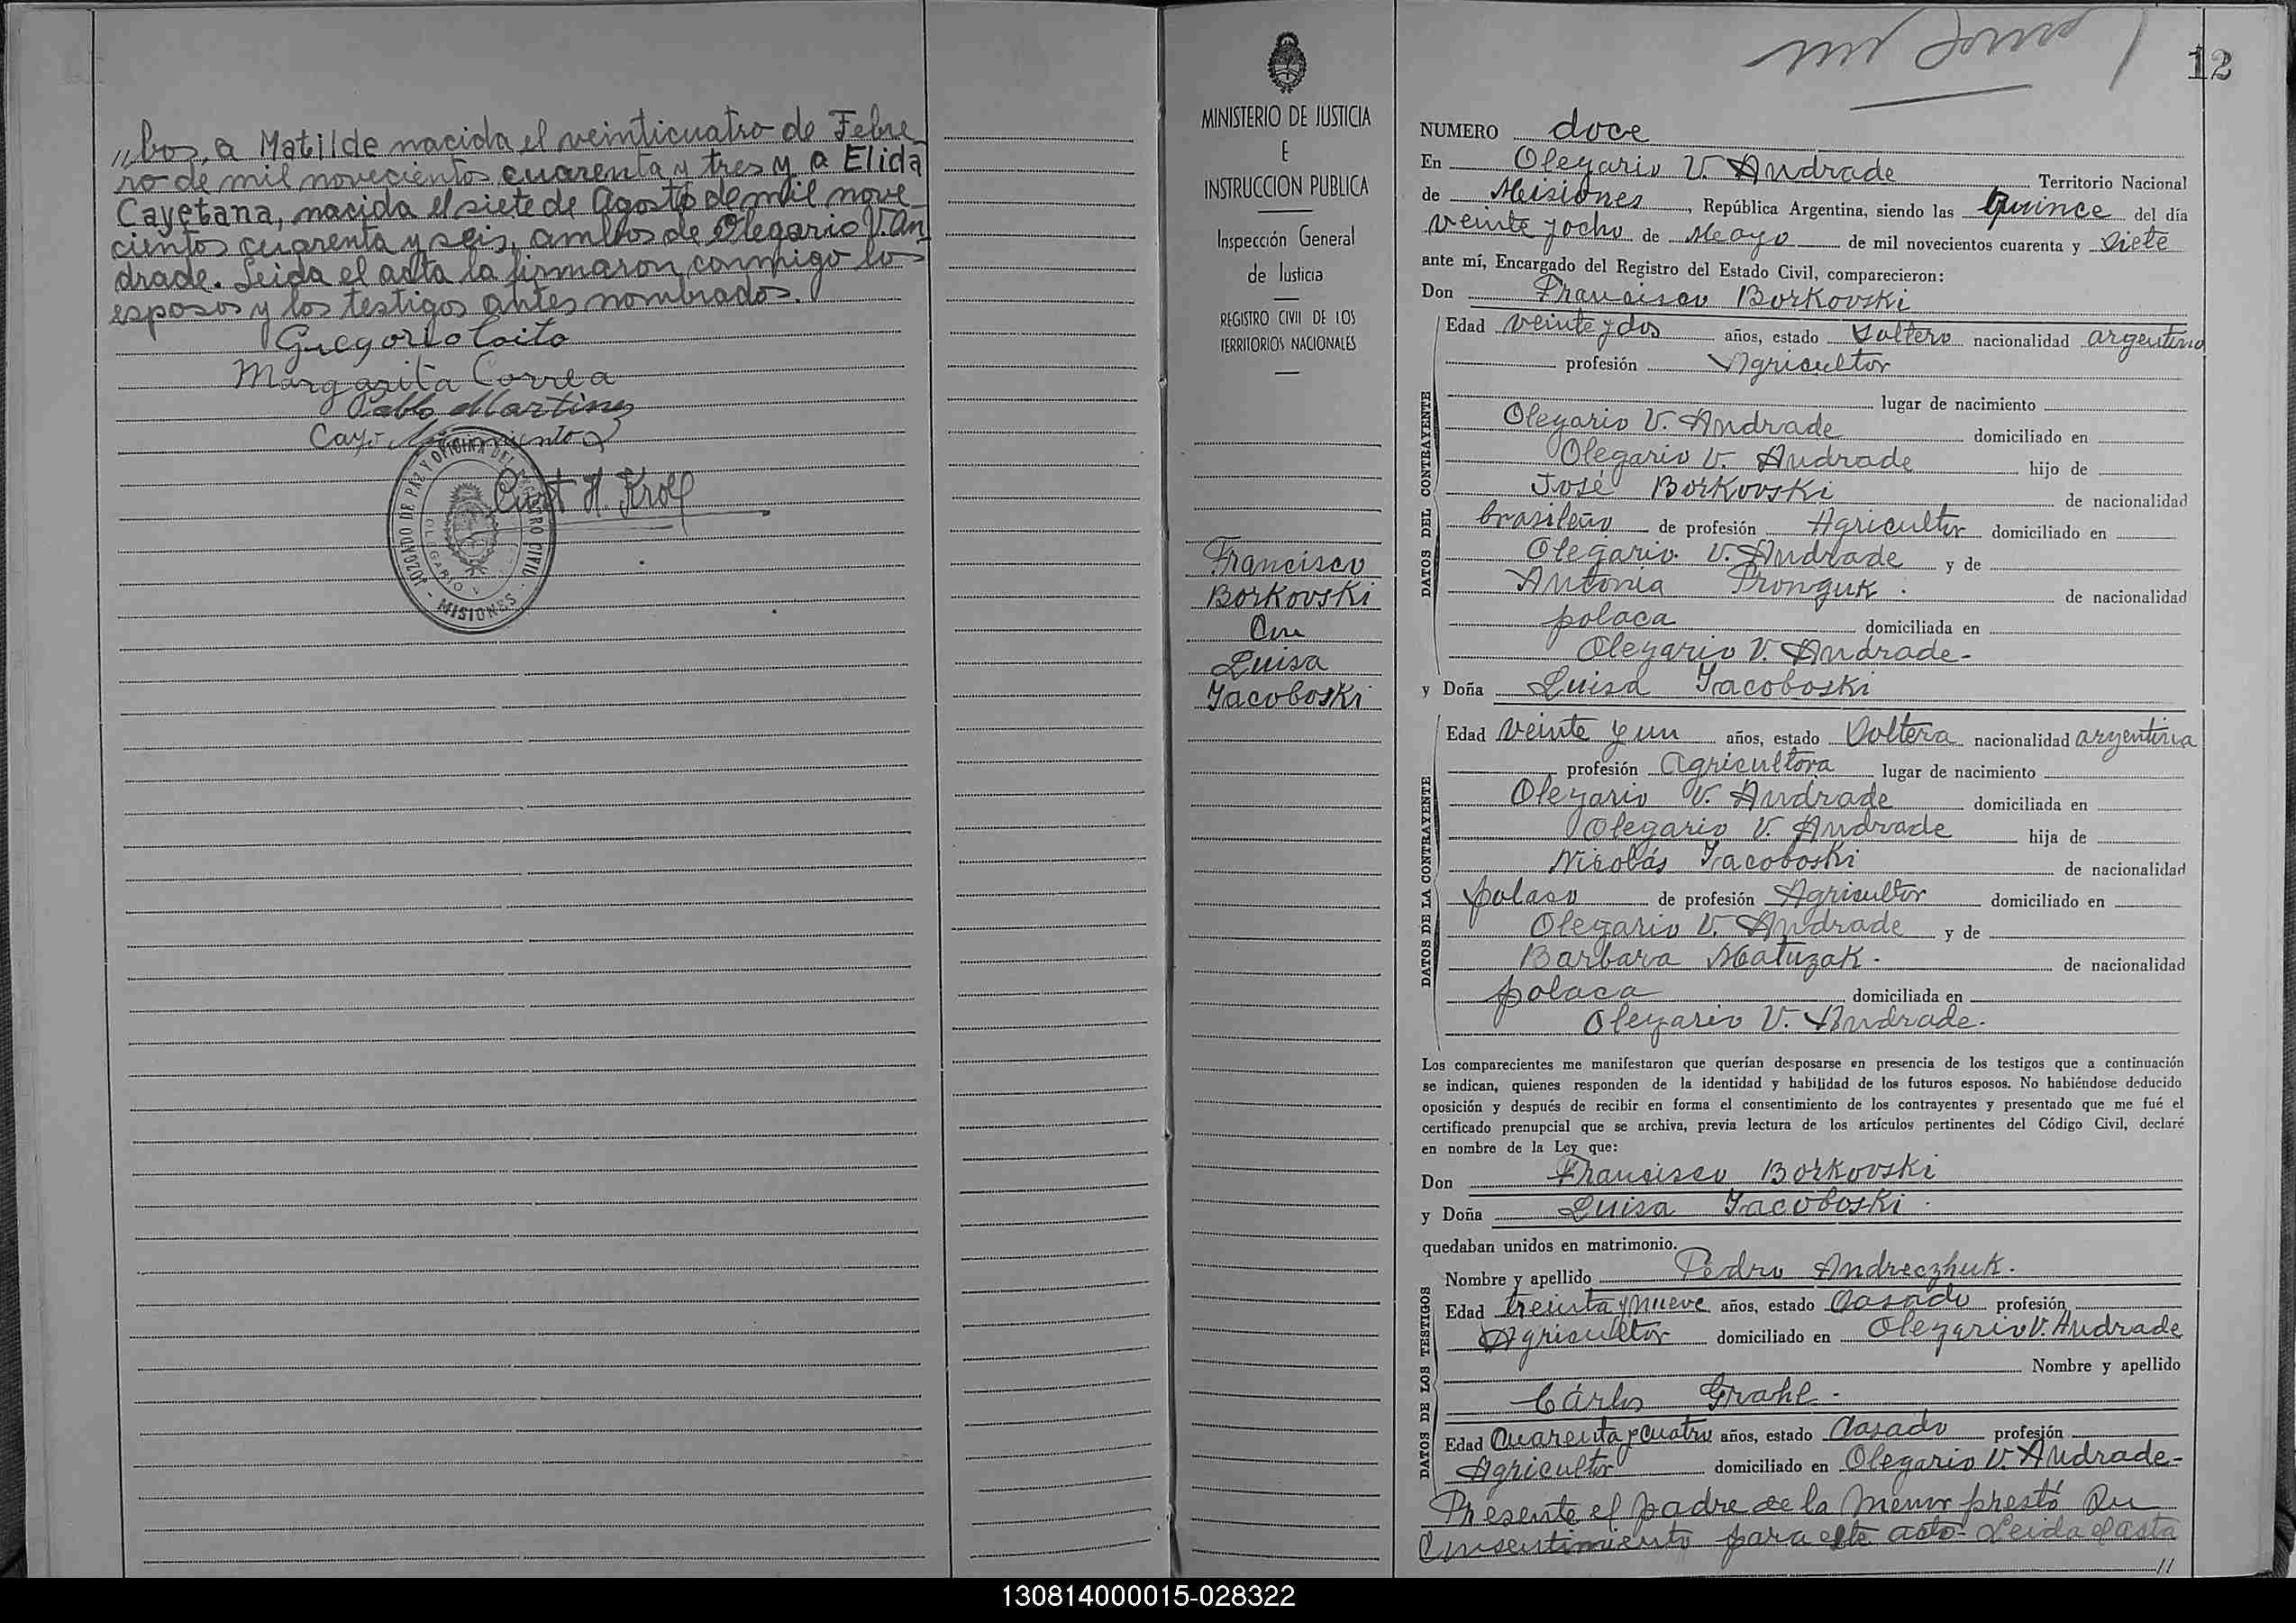 "bos, a Matilde nacida el veinticuatro de Febre
ro de mil novecientos cuarenta y tres y a Elida
Cayetana, nacida el siete de Agosto de mil nove
cientos cuarenta y seis, ambos de Olegario V. An
drade. Leida el acta la firmaron conmigo lo
esposos y los testigos antes nombrados.
Gregorio
Margarita Correa
Pablo Martinez
Cayo
Curt H. Krolf
JUZGADO DE PAZ Y OFICINA DEL REGISTRO CIVIL
OLEGARIO V.
- MISIONES -
MINISTERIO DE JUSTICIA
E
INSTRUCCION PUBLICA
Inspección General
de Justicia
REGISTRO CIVIL DE LOS
TERRITORIOS NACIONALES
Francisco
Borkovski
Con
Luisa
Yacoboski
12
NUMERO doce
En Olegario V. Andrade Territorio Nacional
de Misiones, República Argentina, siendo las Quince del día
veinte y ocho de Mayo de mil novecientos cuarenta y Siete
ante mí, Encargado del Registro del Estado Civil, comparecieron:
Don Francisco Borkovski
DATOS DEL CONTRAYENTE
Edad veinte y dos años, estado Soltero nacionalidad argentino
profesión Agricultor
lugar de nacimiento
Olegario V. Andrade domiciliado en
Olegario V. Andrade hijo de
José Borkovski de nacionalidad
brasileño de profesión Agricultor domiciliado en
Olegario V. Andrade y de
Antonia Pronguk. de nacionalidad
polaca domiciliada en
Olegario V. Andrade-
y Doña Luisa Yacoboski
DATOS DE LA CONTRAYENTE
Edad veinte y un años, estado Soltera nacionalidad argentina
profesión Agricultora lugar de nacimiento
Olegario V. Andrade domiciliada en
Olegario V. Andrade hija de
Nicolás Yacoboski de nacionalidad
polaco de profesión Agricultor domiciliado en
Olegario V. Andrade y de
Barbara Matuzak. de nacionalidad
polaca domiciliada en
Olegario V. Andrade.
Los comparecientes me manifestaron que querían desposarse en presencia de los testigos que a continuación
se indican, quienes responden de la identidad y habilidad de los futuros esposos. No habiéndose deducido
oposición y después de recibir en forma el consentimiento de los contrayentes y presentado que me fué el
certificado prenupcial que se archiva, previa lectura de los artículos pertinentes del Código Civil, declaré
en nombre de la Ley que:
Don Francisco Borkovski
y Doña Luisa Yacoboski.
quedaban unidos en matrimonio.
DATOS DE LOS TESTIGOS
Nombre y apellido Pedro Andreczhuk.
Edad treinta y nueve años, estado Casado profesión
Agricultor domiciliado en Olegario V. Andrade
Nombre y apellido
Cárlos Grahl.
Edad Cuarenta y cuatro años, estado Casado profesión
Agricultor domiciliado en Olegario V. Andrade-
Presente el padre de la menor prestó Su
Consentimiento para este acto- Leida el acta
//
130814000015-028322